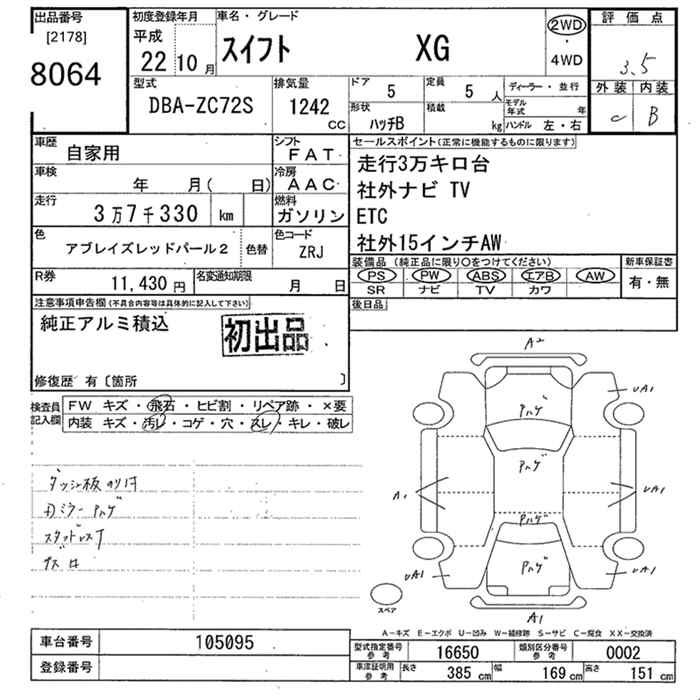 出品番号
[2178]
8064
初度登録年月
平成
22 10 月
車名・グレード
スイフト XG
2WD
・
4WD
評価点
3.5
外装 内装
C B
型式
DBA-ZC72S
排気量
1242
CC
ドア
5
定員
5 人
ディーラー・並行
形状
ハッチB
積載
kg
モデル年式 年
ハンドル 左・右
車歴
自家用
シフト
FAT
車検
年 月( 日)
冷房
AAC
走行
3万7千330 km
燃料
ガソリン
色
アブレイズレッドパール2
色替
色コード
ZRJ
R券
11,430 円
名変通知期限
月 日
セールスポイント(正常に機能するものに限ります)
走行3万キロ台
社外ナビ TV
ETC
社外15インチAW
装備品 (純正品に限り○をつけてください)
PS PW ABS エアB AW
SR ナビ TV カワ
新車保証書
有・無
後日品
注意事項申告欄(不具合内容等は具体的に記入して下さい)
純正アルミ積込
初出品
修復歴 有〔箇所 〕
検査員記入欄
FW キズ・飛石・ヒビ割・リペア跡・×要
内装 キズ・汚レ・コゲ・穴・スレ・キレ・破レ
ダッシュ板のり付
ミラー ハゲ
スタッドレス
A2
UA1
Aハゲ
Aハゲ
A1
UA1
Aハゲ
Aハゲ
UA1
UA1
スペア
A1
A-キズ E-エクボ U-凹み W-補修跡 S-サビ C-腐食 XX-交換済
車台番号
105095
登録番号
型式指定番号参考
16650
類別区分番号参考
0002
車庫証明用参考
長さ 385 cm
幅 169 cm
高さ 151 cm